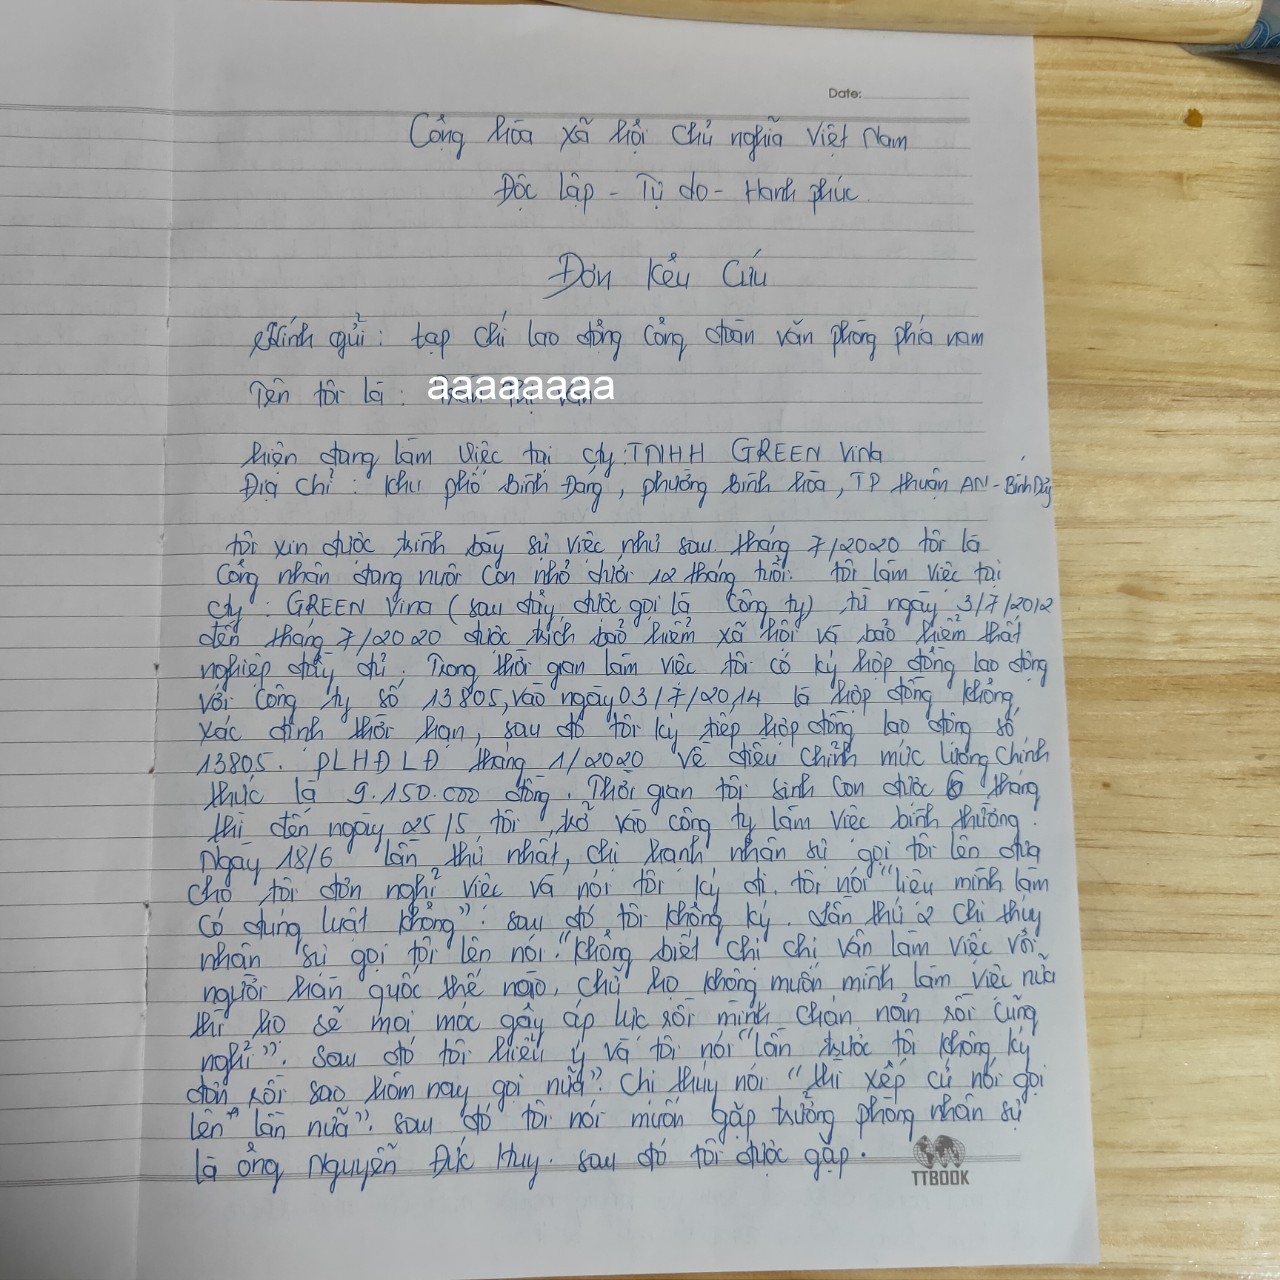 Date:
Cộng hòa xã hội chủ nghĩa Việt Nam
Độc lập - Tự do - Hạnh phúc
Đơn kêu cứu
Kính gửi: tạp chí lao động công đoàn văn phòng phía nam
Tên tôi là: aaaaaaaa
hiện đang làm việc tại cty: TNHH GREEN Vina
Địa chỉ: khu phố Bình Đáng, phường bình hòa, TP thuận AN-Bình Dg
tôi xin được trình bày sự việc như sau tháng 7/2020 tôi là
công nhân đang nuôi con nhỏ dưới 12 tháng tuổi. tôi làm việc tại
cty: GREEN Vina (sau đây được gọi là công ty) từ ngày 3/7/2012
đến tháng 7/2020 được trích bảo hiểm xã hội và bảo hiểm thất
nghiệp đầy đủ. Trong thời gian làm việc tôi có ký hợp đồng lao động
với công ty số 13805, vào ngày 03/7/2014 là hợp đồng không
xác định thời hạn, sau đó tôi ký tiếp hợp đồng lao động số
13805. PLHĐLĐ tháng 1/2020 về điều chỉnh mức lương chính
thức là 9.150.000 đồng. Thời gian tôi sinh con được 6 tháng
thì đến ngày 25/5 tôi trở vào công ty làm việc bình thường.
Ngày 18/6 lần thứ nhất, chị hạnh nhân sự gọi tôi lên đưa
cho tôi đơn nghỉ việc và nói tôi ký đi. tôi nói "liệu mình làm
có đúng luật không". sau đó tôi không ký. Lần thứ 2 chị thúy
nhân sự gọi tôi lên nói. "không biết chị chị vân làm việc với
người hàn quốc thế nào, chứ họ không muốn mình làm việc nữa
thì họ sẽ moi móc gây áp lực rồi mình chán nản rồi cũng
nghỉ". Sau đó tôi hiểu ý và tôi nói "lần trước tôi không ký
đơn rồi sao hôm nay gọi nữa". Chị thúy nói "thì xếp cứ nói gọi
lên lần nữa". sau đó tôi nói muốn gặp trưởng phòng nhân sự
là ông Nguyễn Đức Huy. sau đó tôi được gặp.
TTBOOK